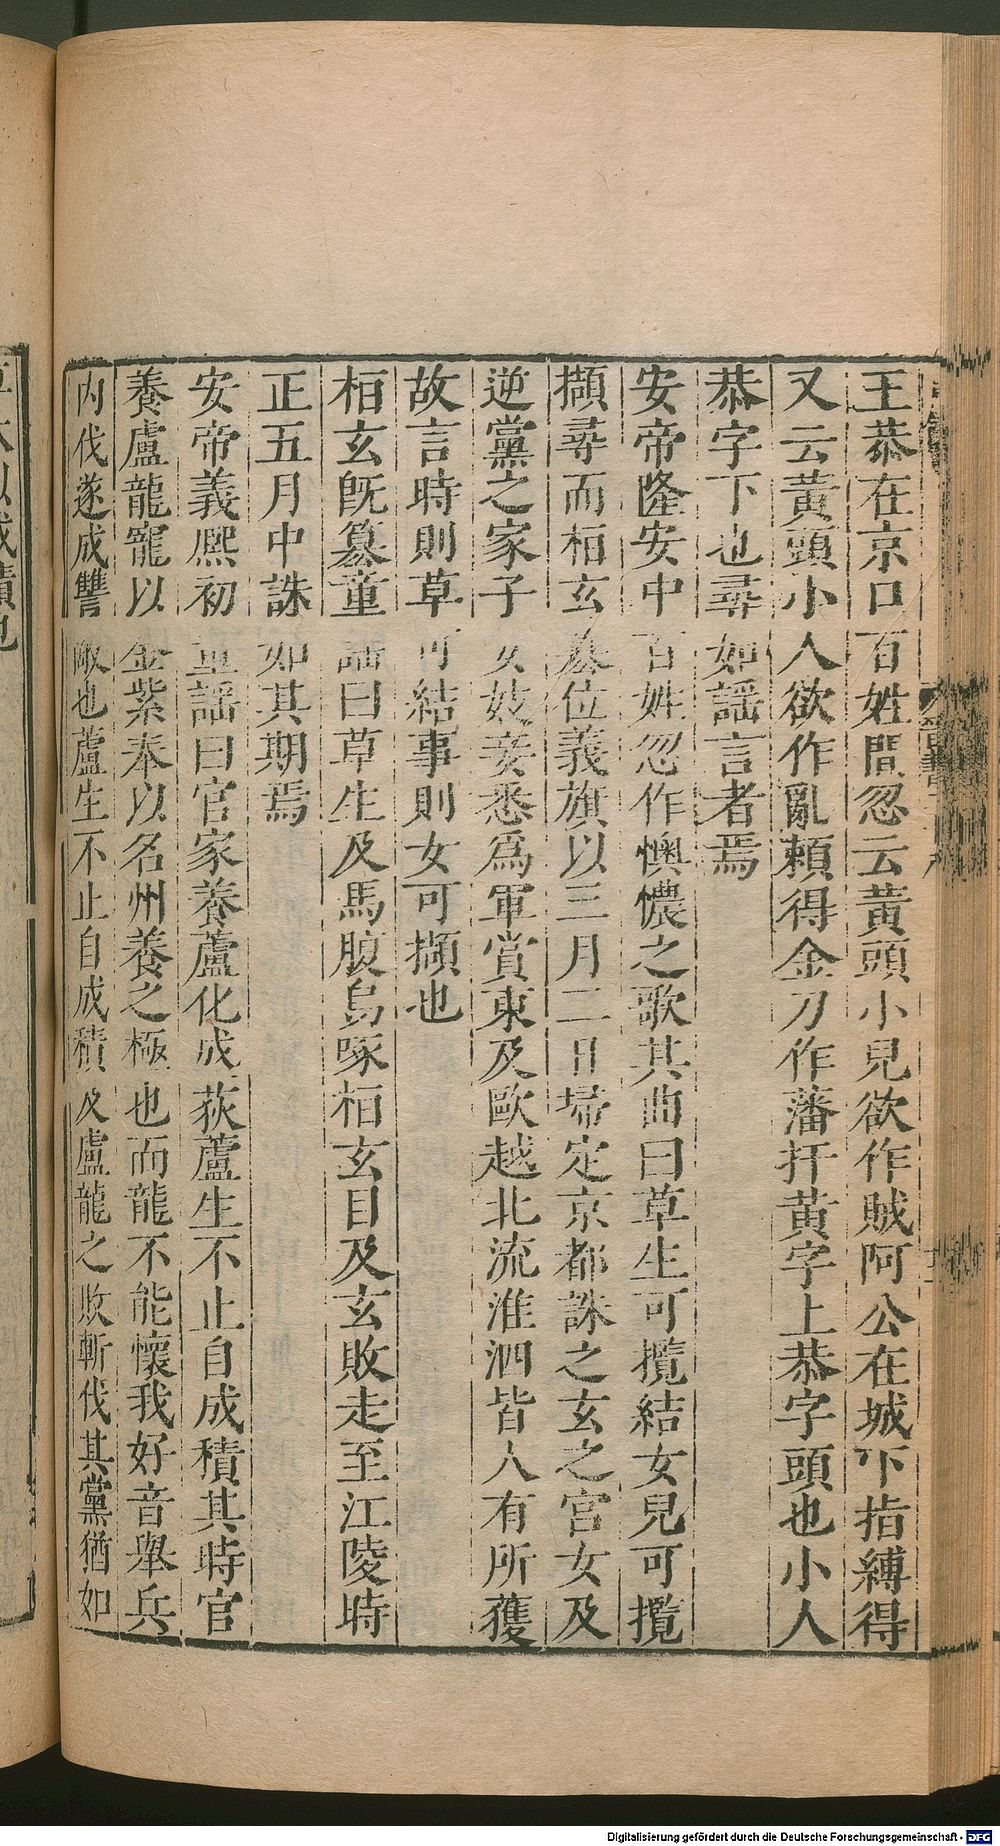 王恭在京口百姓間忽云黃頭小兒欲作賊阿公在城下指縛得
又云黃頭小人欲作亂賴得金刀作藩扞黃字上恭字頭也小人
恭字下也尋如謡言者焉
安帝隆安中百姓忽作懊憹之歌其曲曰草生可攬結女兒可攬
擷尋而桓玄簒位義旗以三月二日埽定京都誅之玄之宮女及
逆黨之家子女妓妾悉爲軍賞東及歐越北流淮泗皆人有所獲
故言時則草可結事則女可擷也
桓玄既簒童謡曰草生及馬腹烏啄桓玄目及玄敗走至江陵時
正五月中誅如其期焉
安帝義熙初童謡曰官家養蘆化成荻蘆生不止自成積其時官
養盧龍寵以金紫奉以名州養之極也而龍不能懷我好音舉兵
内伐遂成讐敵也蘆生不止自成積及盧龍之敗斬伐其黨猶如
草木以成積也
Digitalisierung gefördert durch die Deutsche Forschungsgemeinschaft - DFG